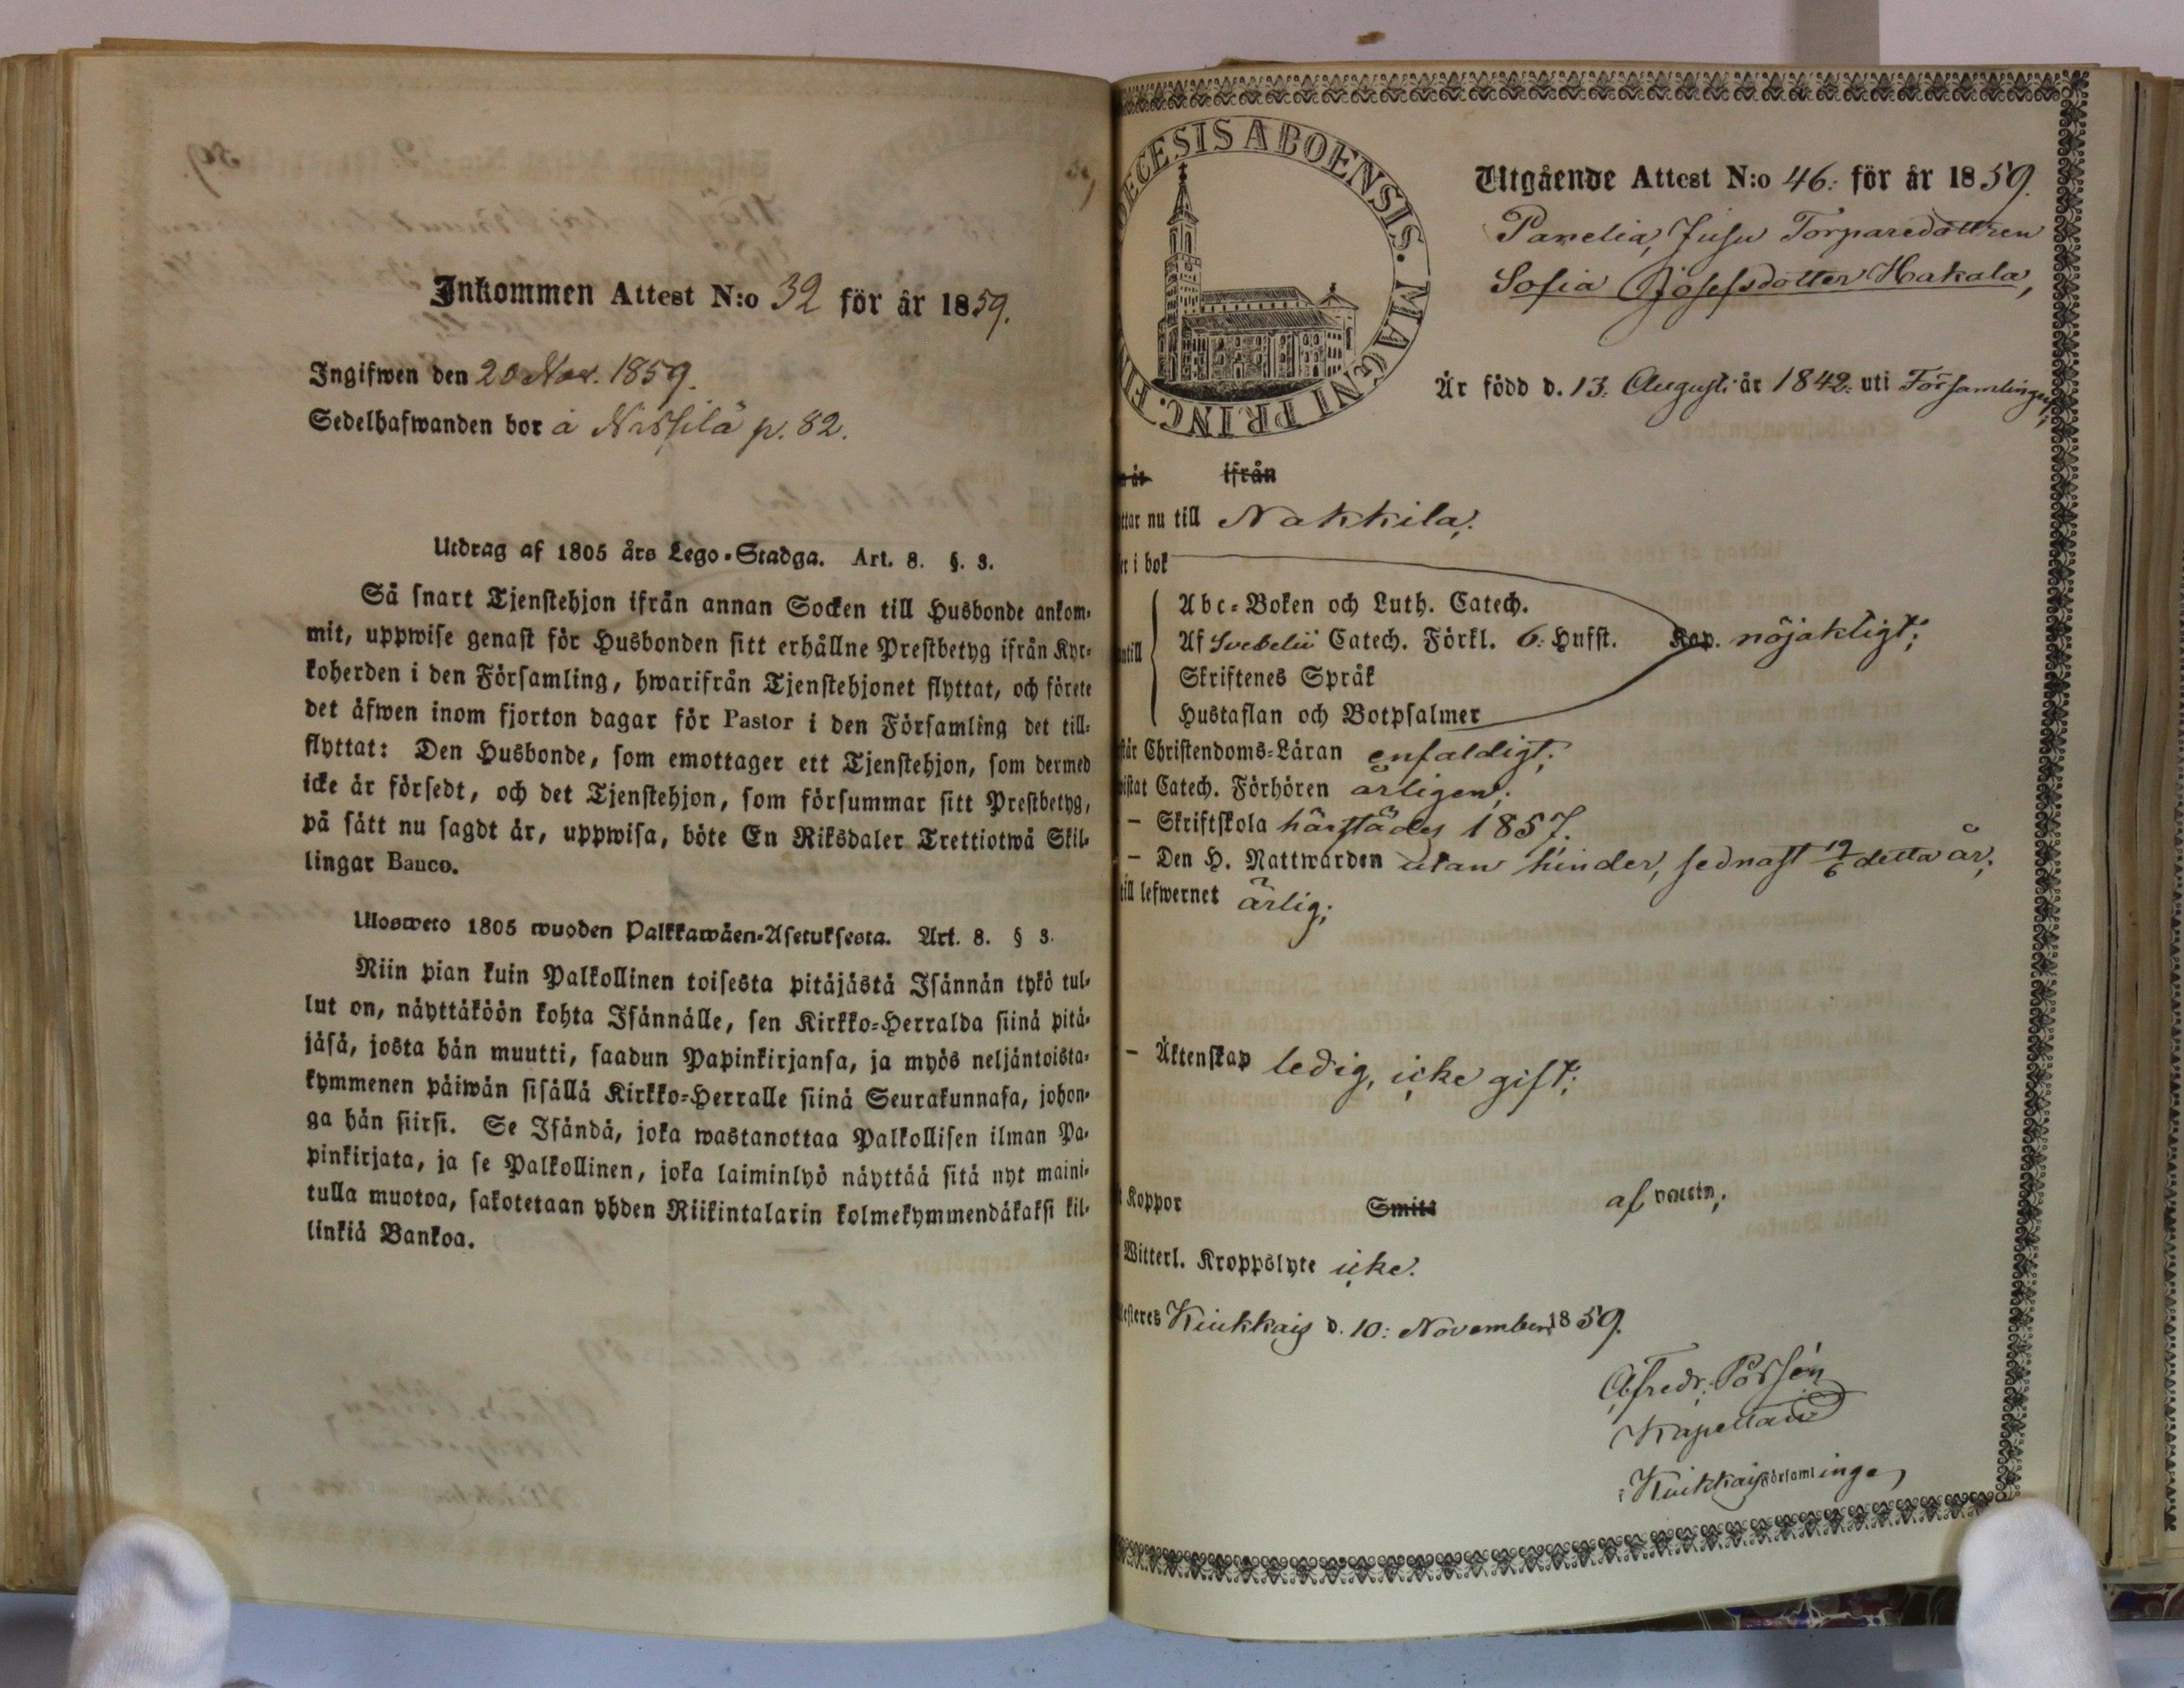 Inkommen Attest N:o 32 för år 1859.
Ingifwen den 20 Nov. 1859.
Sedelhafwanden bor å Nassila p. 82.
Utdrag af 1805 års Lego-Stadga. Art. 8. §. 3.
Så snart Tjenstehjon ifrån annan Socken till Husbonde ankom-
mit, uppwise genast för Husbonden sitt erhållne Prestbetyg ifrån Kyr-
koherden i den Församling, hwarifrån Tjenstehjonet flyttat, och förete
det äfwen inom fjorton dagar för Pastor i den Församling det till-
flyttat: Den Husbonde, som emottager ett Tjenstehjon, som dermed
icke är försedt, och det Tjenstehjon, som försummar sitt Prestbetyg,
på sätt nu sagdt är, uppwisa, böte En Riksdaler Trettiotwå Skil-
lingar Banco.
Ulosweto 1805 wuoden Palkkawäen-Asetuksesta. Art. 8. § 3.
Niin pian kuin Palkollinen toisesta pitäjästä Isännän tykö tul-
lut on, näyttäköön kohta Isännälle, sen Kirkko-Herralda siinä pitä-
jäsä, josta hän muutti, saadun Papinkirjansa, ja myös neljäntoista-
kymmenen päiwän sisällä Kirkko-Herralle siinä Seurakunnasa, johon-
ga hän siirsi. Se Isändä, joka wastanottaa Palkollisen ilman Pa-
pinkirjata, ja se Palkollinen, joka laiminlyö näyttää sitä nyt maini-
tulla muotoa, sakotetaan yhden Riikintalarin kolmekymmendäkaksi kil-
linkiä Bankoa.
ECESIS ABOENSIS. MAGNI PRINC. FI
Utgående Attest N:o 46: för år 1859.
Panelia, Jusu Torparedottren
Sofia Josefsdotter Hakala,
Är född d. 13. Augusti år 1842: uti Församlingen,
ifrån
ttar nu till Nakkila;
i bok
Abc-Boken och Luth. Catech.
Af Svebelii Catech. Förkl. 6: Hufst. Kap. nöjaktigt;
Skriftenes Språk
Hustaflan och Botpsalmer
står Christendoms-Läran enfaldigt;
istat Catech. Förhören årligen;
– Skriftskola härstädes 1857.
– Den H. Nattwarden utan hinder, sednast 19/6 detta år;
till lefwernet ärlig;
– Äktenskap ledig, icke gift;
Koppor Smitt af vaccin;
Witterl. Kroppslyte icke.
esteres Kiukkais d. 10: November 1859.
Afredr. Porsén
Kapellan
i Kiukkais Församlinge,